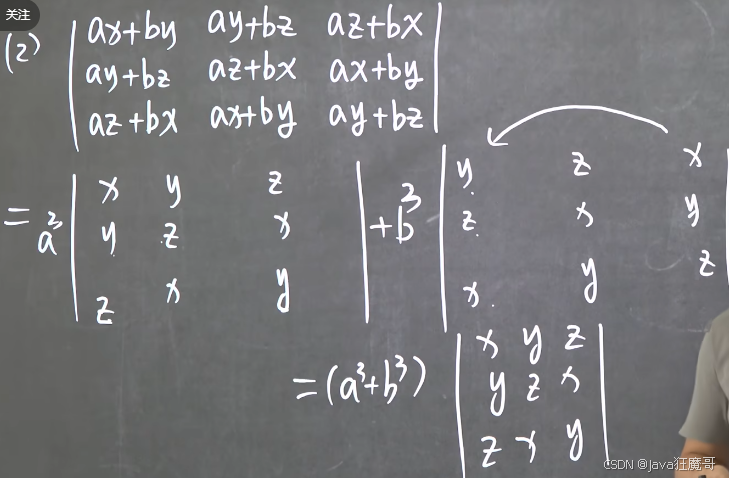 关注
(2) | ax+by ay+bz az+bx |
| ay+bz az+bx ax+by |
| az+bx ax+by ay+bz |
= a³ | x y z | + b³ | y z x |
| y z x | | z x y |
| z x y | | x y z |
= (a³+b³) | x y z |
| y z x |
| z x y |
CSDN @Java狂魔哥